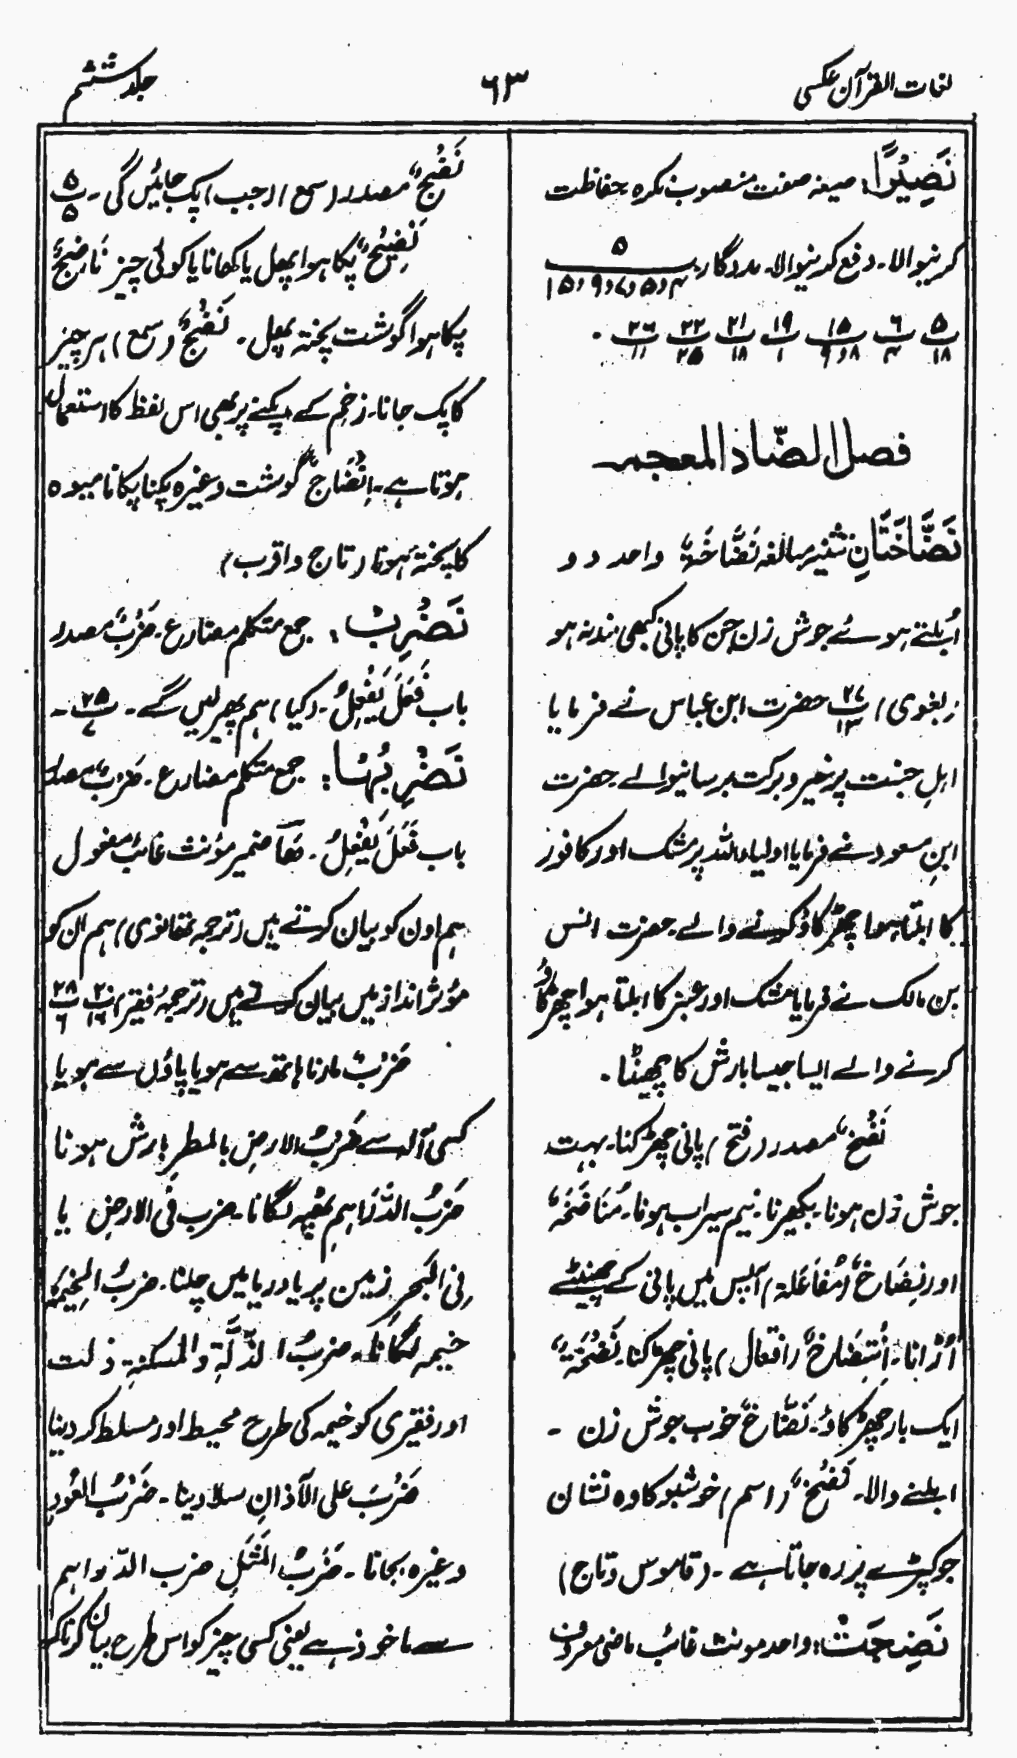 لغات القرآن عکسی
۶۳
جلد ششم
نَصِیْرًا: صیغہ صفت منصوب نکرہ حفاظت
کرنیوالا۔ دفع کرنیوالا۔ مددگار ۵ / ۴، ۵، ۷، ۹، ۱۵
۵/۱۸ ۶/۴ ۱۵/۹،۸ ۱۹/۱ ۲۱/۱۸ ۲۲/۲۵ ۲۶/۱۱ ۔
فصل الضّاد المعجمہ
نَضَّاخَتَانِ تثنیہ مبالغہ نَضَّاخَۃٌ واحد دو
اُبلتے ہوئے جوش زن جن کا پانی کبھی بند نہ ہو
(بغوی) ۲۷/۱۳ حضرت ابن عباس نے فرمایا
اہلِ جنت پر خیر و برکت برسانیوالے حضرت
ابنِ مسعود نے فرمایا اولیاء اللہ پر مشک اور کافور
کا ابلتا ہوا چھڑکاؤ کرنے والے حضرت انس
بن مالک نے فرمایا مشک اور عنبر کا ابلتا ہوا چھڑکاؤ
کرنے والے ایسا جیسا بارش کا چھینٹا۔
نَضْخٌ مصدر (فتح) پانی چھڑکنا۔ بہت
جوش زن ہونا۔ بکھیرنا۔ نیم سیراب ہونا۔ مُنَاضَخَۃٌ
اور نِضَاخٌ (مُفَاعَلَۃ) آپس میں پانی کے چھینٹے
اُڑانا۔ اِنْتِضَاخٌ (افتعال) پانی چھڑکنا۔ نَضْخَۃٌ
ایک بار چھڑکاؤ۔ نَضَّاخٌ خوب جوش زن ۔
ابلنے والا۔ نَضْخٌ (اسم) خوشبو کا وہ نشان
جو کپڑے پر رہ جاتا ہے ۔ (قاموس و تاج)
نَضِجَتْ: واحد مونث غائب ماضی معروف
نَضْجٌ مصدر (سمع) (جب) پک جائیں گی ۔ ۵/۵
نَضِیْجٌ پکا ہوا پھل یا کھانا یا کوئی چیز نَاضِجٌ
پکا ہوا گوشت پختہ پھل۔ نَضْجٌ (سمع) ہر چیز
کا پک جانا۔ زخم کے پکنے پر بھی اس لفظ کا استعمال
ہوتا ہے۔ اِنْضَاجٌ گوشت وغیرہ پکنا پکانا میوہ
کا پختہ ہونا (تاج و اقرب)
نَضْرِبُ: جمع متکلم مضارع۔ ضَرْبٌ مصدر
باب فَعَلَ یَفْعِلُ۔ (کیا) ہم پھیر لیں گے۔ ۲۵/۷ ۔
نَضْرِبُہَا: جمع متکلم مضارع۔ ضَرْبٌ مصدر
باب فَعَلَ یَفْعِلُ۔ ھَا ضمیر مؤنث غائب مفعول
ہم اون کو بیان کرتے ہیں (ترجمہ تھانوی) ہم ان کو
مؤثر انداز میں بیان کرتے ہیں (ترجمہ فقیر) ۲۰/۱۶ ۲۸/۶
ضَرْبٌ مارنا ہاتھ سے ہو یا پاؤں سے ہو یا
کسی آلہ سے ضَرْبُ الارضِ بالمطرِ بارش ہونا
ضَرْبُ الدَّرَاہِمِ ٹھپہ لگانا۔ ضرب فی الارضِ یا
فِی الْبَحْرِ زمین پر یا دریا میں چلنا۔ ضربُ الخیمۃِ
خیمہ لگانا۔ ضربُ الذِّلَّۃِ والمسکنۃِ ذلت
اور فقیری کو خیمہ کی طرح محیط اور مسلط کر دینا
ضَرْبٌ علی الآذانِ سلا دینا ۔ ضَرْبُ العُودِ
وغیرہ بجانا ۔ ضَرْبُ المَثَلِ ضرب الدراہم
سے ماخوذ ہے یعنی کسی چیز کو اس طرح بیان کرنا کہ